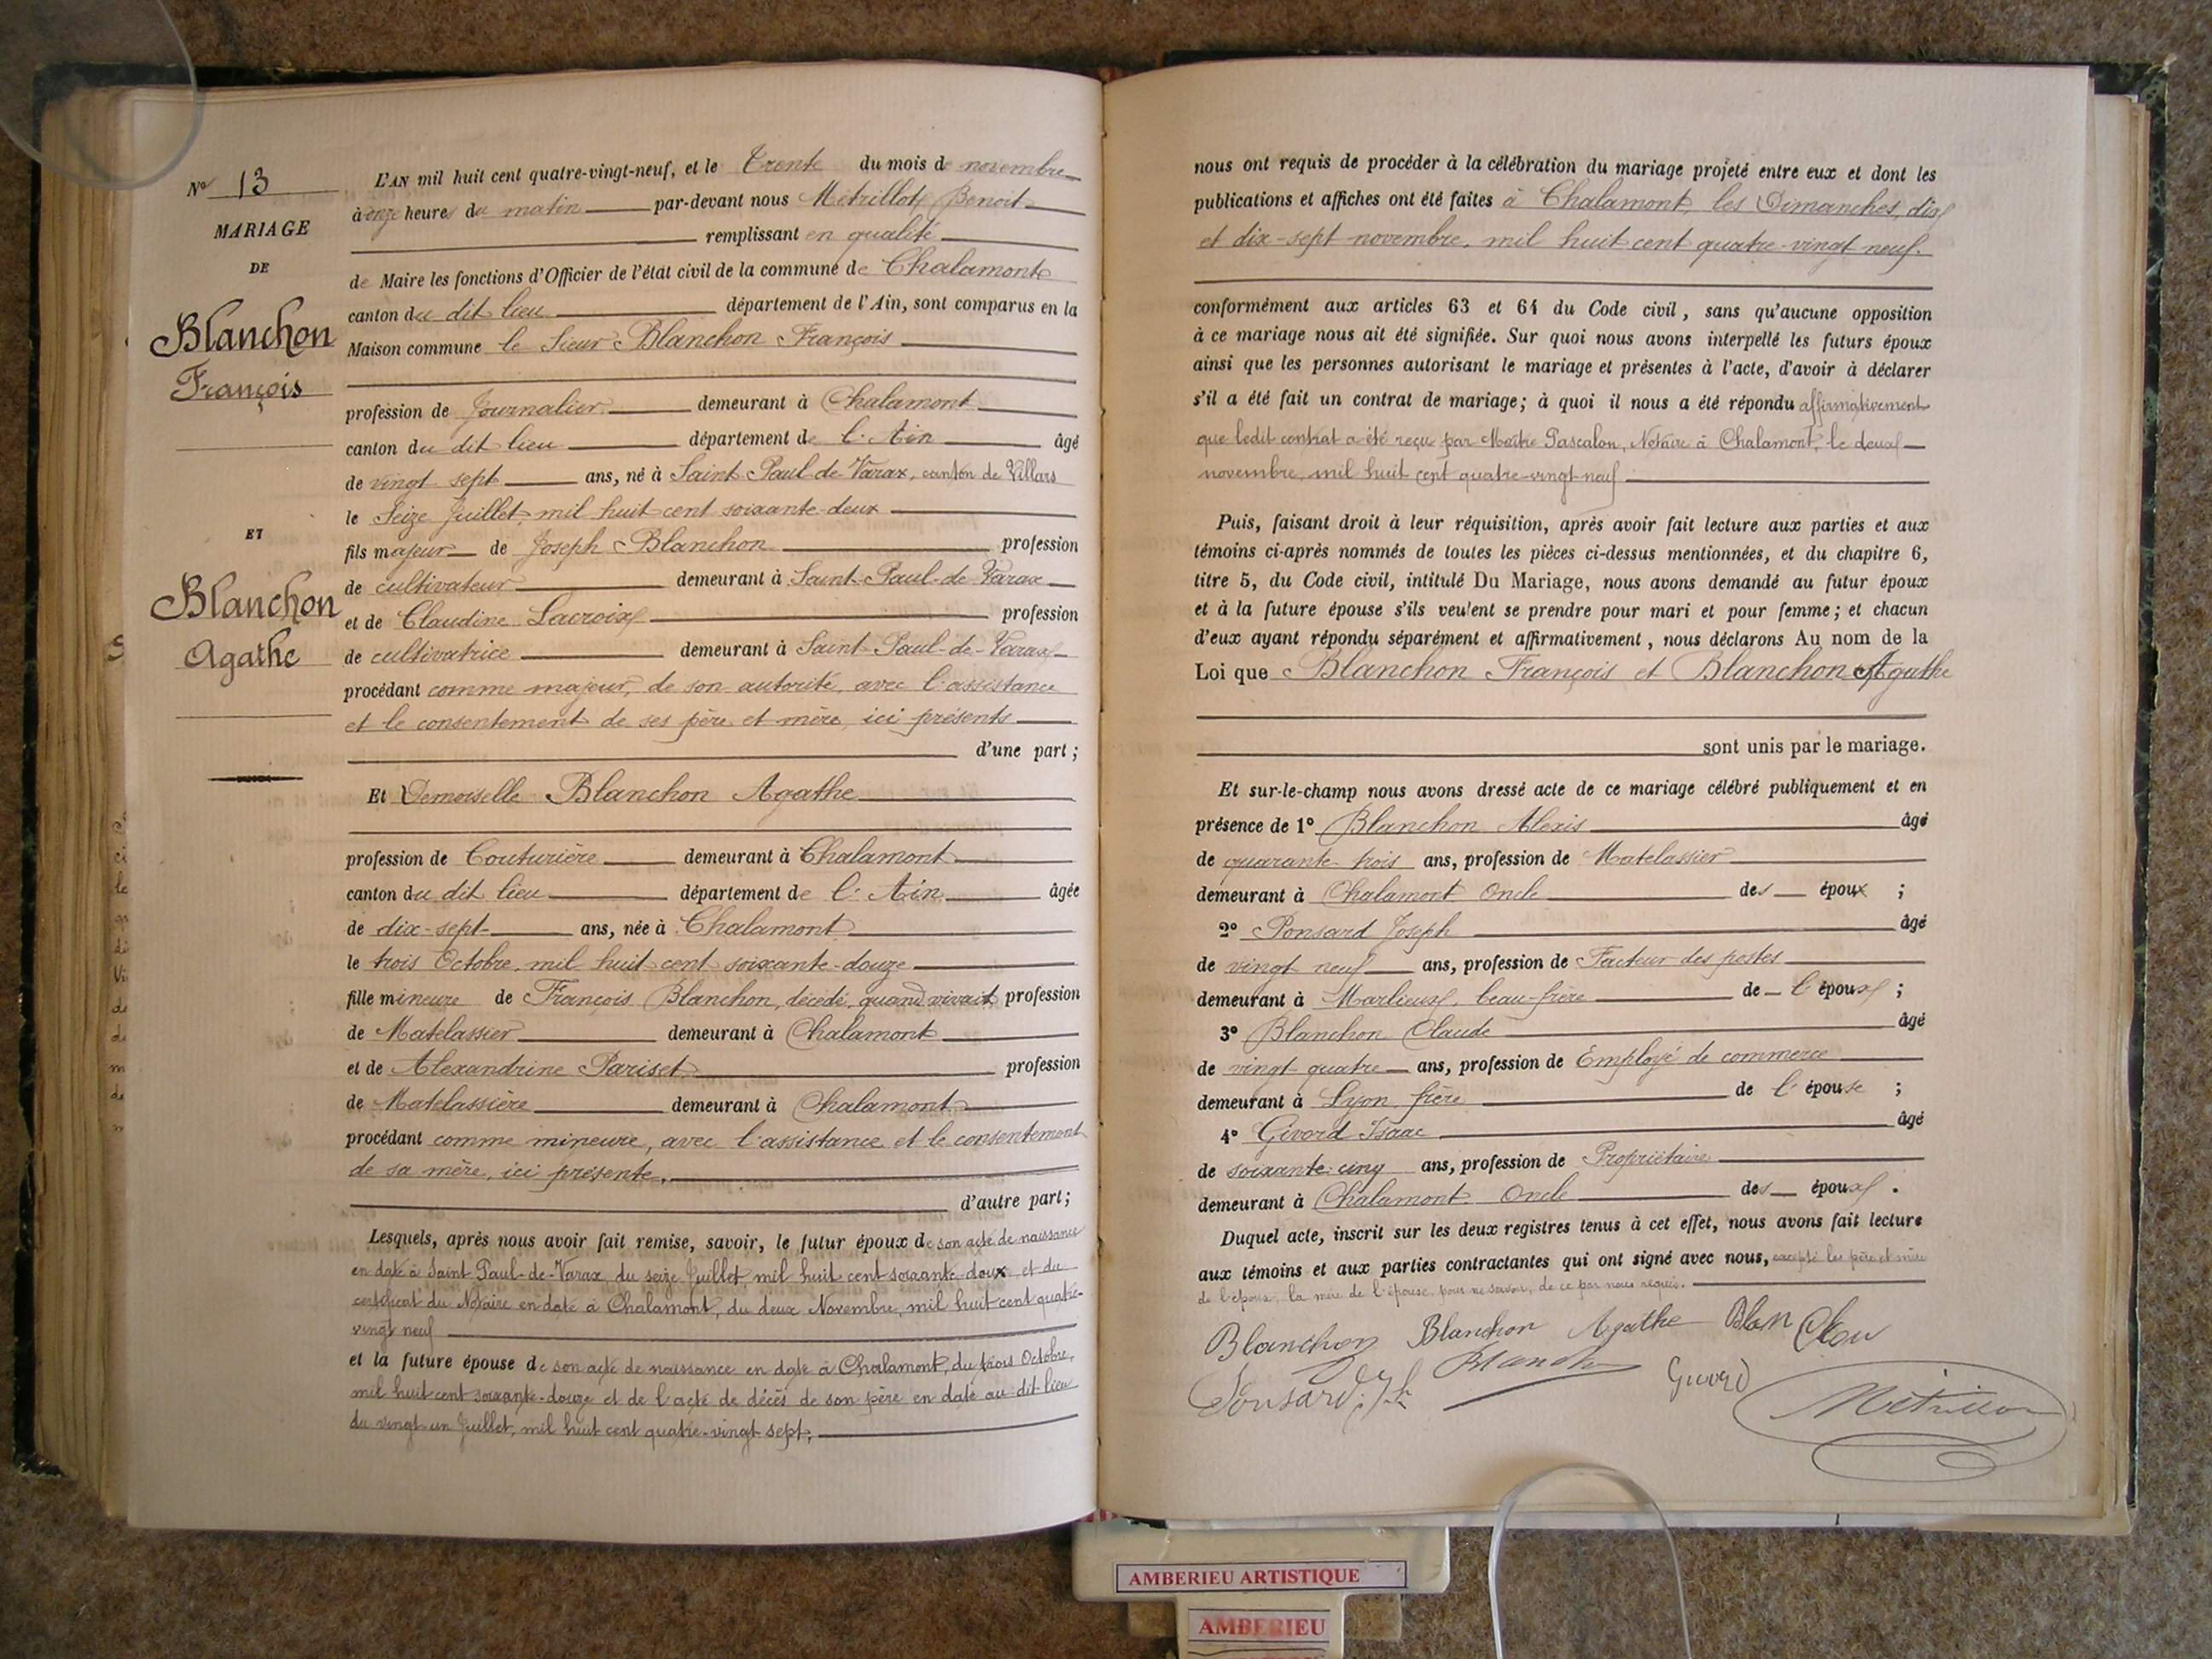 N° 13
MARIAGE
DE
Blanchon
François
ET
Blanchon
Agathe
L'AN mil huit cent quatre-vingt-neuf, et le Trente du mois de novembre
à onze heures du matin par-devant nous Métrillot Benoit
remplissant en qualité
de Maire les fonctions d'Officier de l'état civil de la commune de Chalamont
canton du dit lieu département de l'Ain, sont comparus en la
Maison commune le Sieur Blanchon François
profession de Journalier demeurant à Chalamont
canton du dit lieu département de l'Ain âgé
de vingt sept ans, né à Saint-Paul-de-Varax, canton de Villars
le Seize Juillet, mil huit cent soixante-deux
fils majeur de Joseph Blanchon profession
de cultivateur demeurant à Saint-Paul-de-Varax
et de Claudine Lacroix profession
de cultivatrice demeurant à Saint-Paul-de-Varax
procédant comme majeur, de son autorité, avec l'assistance
et le consentement de ses père et mère, ici présents
d'une part ;
Et Demoiselle Blanchon Agathe
profession de Couturière demeurant à Chalamont
canton du dit lieu département de l'Ain âgée
de dix-sept ans, née à Chalamont
le trois Octobre, mil huit cent soixante-douze
fille mineure de François Blanchon, décédé, quand vivait, profession
de Matelassier demeurant à Chalamont
et de Alexandrine Pariset profession
de Matelassière demeurant à Chalamont
procédant comme mineure, avec l'assistance et le consentement
de sa mère, ici présente,
d'autre part ;
Lesquels, après nous avoir fait remise, savoir, le futur époux de son acte de naissance
en date à Saint Paul-de-Varax, du seize Juillet, mil huit cent soixante-deux et du
certificat du Notaire en date à Chalamont, du deux Novembre, mil huit cent quatre-
vingt neuf
et la future épouse de son acte de naissance en date à Chalamont, du trois Octobre,
mil huit cent soixante-douze et de l'acte de décès de son père en date au dit lieu
du vingt-un Juillet, mil huit cent quatre-vingt-sept;
nous ont requis de procéder à la célébration du mariage projeté entre eux et dont les
publications et affiches ont été faites à Chalamont, les Dimanches, dix
et dix-sept novembre, mil huit cent quatre-vingt neuf.
conformément aux articles 63 et 64 du Code civil, sans qu'aucune opposition
à ce mariage nous ait été signifiée. Sur quoi nous avons interpellé les futurs époux
ainsi que les personnes autorisant le mariage et présentes à l'acte, d'avoir à déclarer
s'il a été fait un contrat de mariage; à quoi il nous a été répondu affirmativement
que ledit contrat a été reçu par Maître Pascalon, Notaire à Chalamont, le deux
novembre, mil huit cent quatre-vingt-neuf
Puis, faisant droit à leur réquisition, après avoir fait lecture aux parties et aux
témoins ci-après nommés de toutes les pièces ci-dessus mentionnées, et du chapitre 6,
titre 5, du Code civil, intitulé Du Mariage, nous avons demandé au futur époux
et à la future épouse s'ils veulent se prendre pour mari et pour femme; et chacun
d'eux ayant répondu séparément et affirmativement, nous déclarons Au nom de la
Loi que Blanchon François et Blanchon Agathe
sont unis par le mariage.
Et sur-le-champ nous avons dressé acte de ce mariage célébré publiquement et en
présence de 1° Blanchon Alexis âgé
de quarante-trois ans, profession de Matelassier
demeurant à Chalamont Oncle des époux ;
2° Ponsard Joseph âgé
de vingt neuf ans, profession de Facteur des postes
demeurant à Marlieux, beau-frère de l'époux ;
3° Blanchon Claude âgé
de vingt quatre ans, profession de Employé de commerce
demeurant à Lyon frère de l'épouse ;
4° Givord Isaac âgé
de soixante-cinq ans, profession de Propriétaire
demeurant à Chalamont. Oncle des époux .
Duquel acte, inscrit sur les deux registres tenus à cet effet, nous avons fait lecture
aux témoins et aux parties contractantes qui ont signé avec nous, excepté les père et mère
de l'époux, la mère de l'épouse, pour ne savoir, de ce par nous requis.
Blanchon Blanchon Agathe Blan
Ponsard Jh Givord
AMBERIEU ARTISTIQUE
AMBERIEU